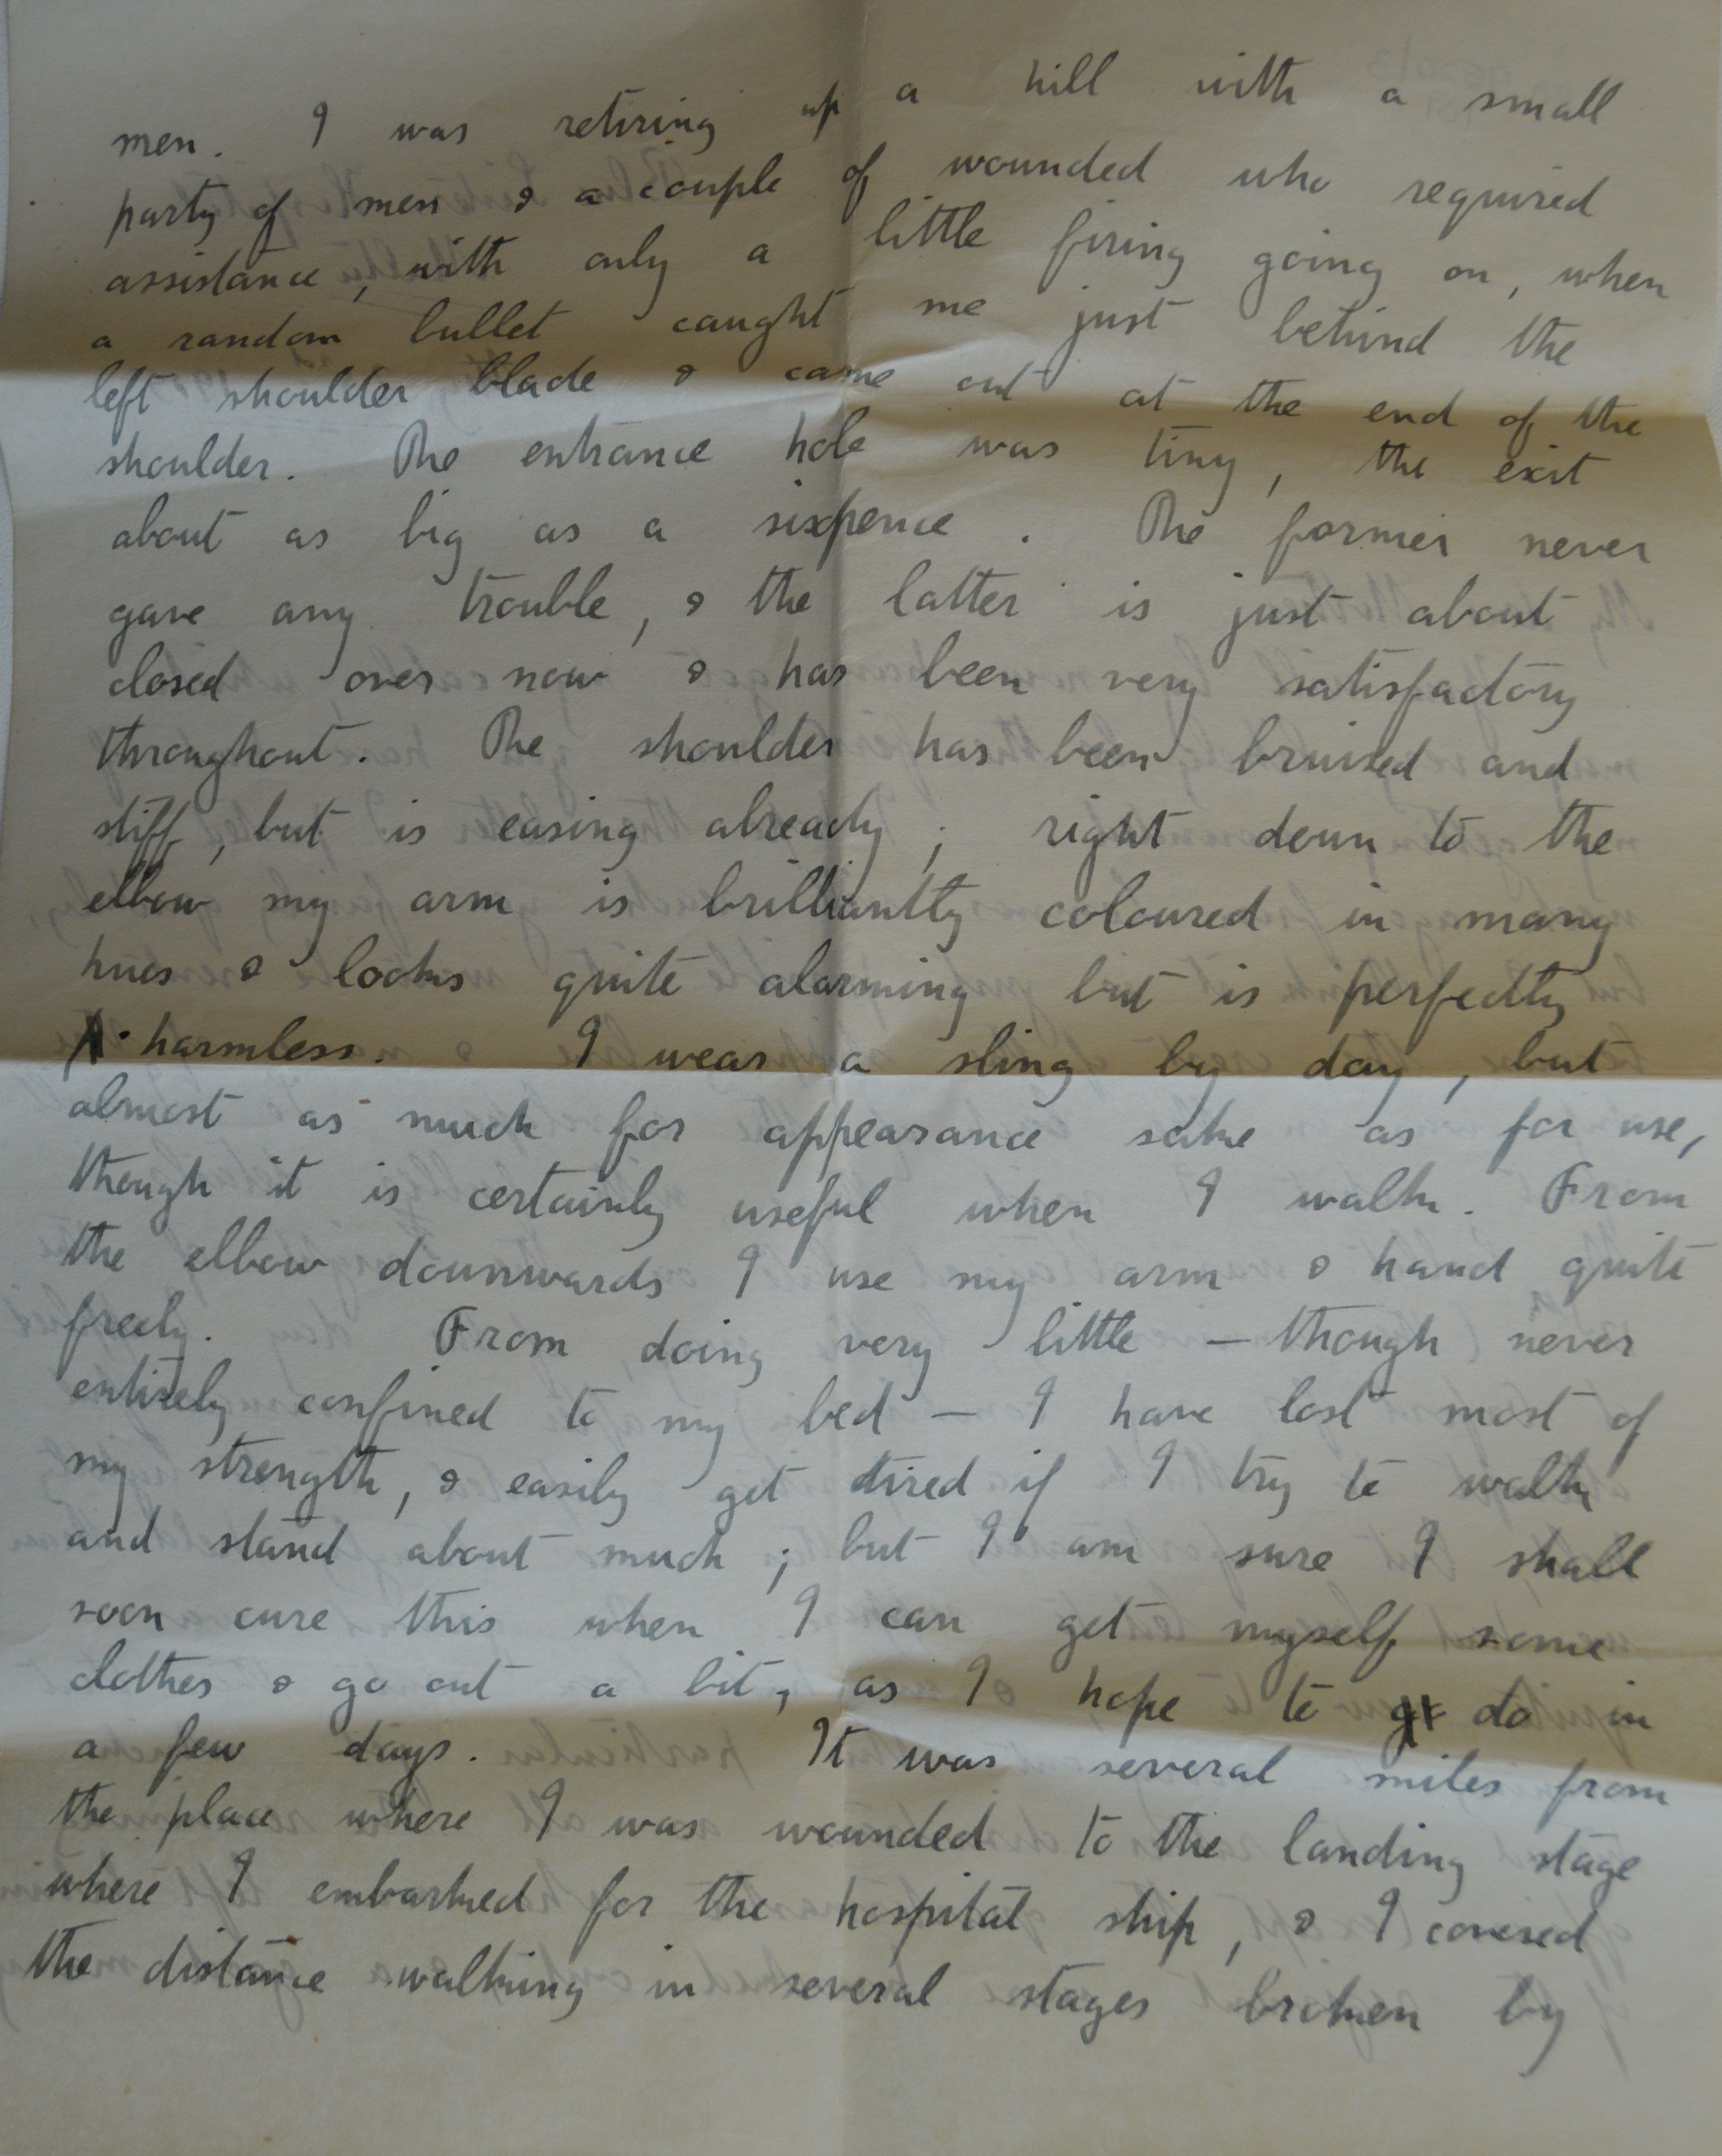 men. I was retiring up a hill with a small
party of men & a couple of wounded who required
assistance, with only a little firing going on, when
a random bullet caught me just behind the
left shoulder blade & came out at the end of the
shoulder. The entrance hole was tiny, the exit
about as big as a sixpence. The former never
gave any trouble, & the latter is just about
closed over now & has been very satisfactory
throughout. The shoulder has been bruised and
stiff, but is easing already; right down to the
elbow my arm is brilliantly coloured in many
hues & looks quite alarming but is perfectly
harmless. I wear a sling by day, but
almost as much for appearance sake as for use,
though it is certainly useful when I walk. From
the elbow downwards I use my arm & hand quite
freely. From doing very little – though never
entirely confined to my bed – I have lost most of
my strength, & easily get tired if I try to walk
and stand about much; but I am sure I shall
soon cure this when I can get myself some
clothes & go out a bit, as I hope to do in
a few days. It was several miles from
the place where I was wounded to the landing stage
where I embarked for the hospital ship, & I covered
the distance walking in several stages broken by